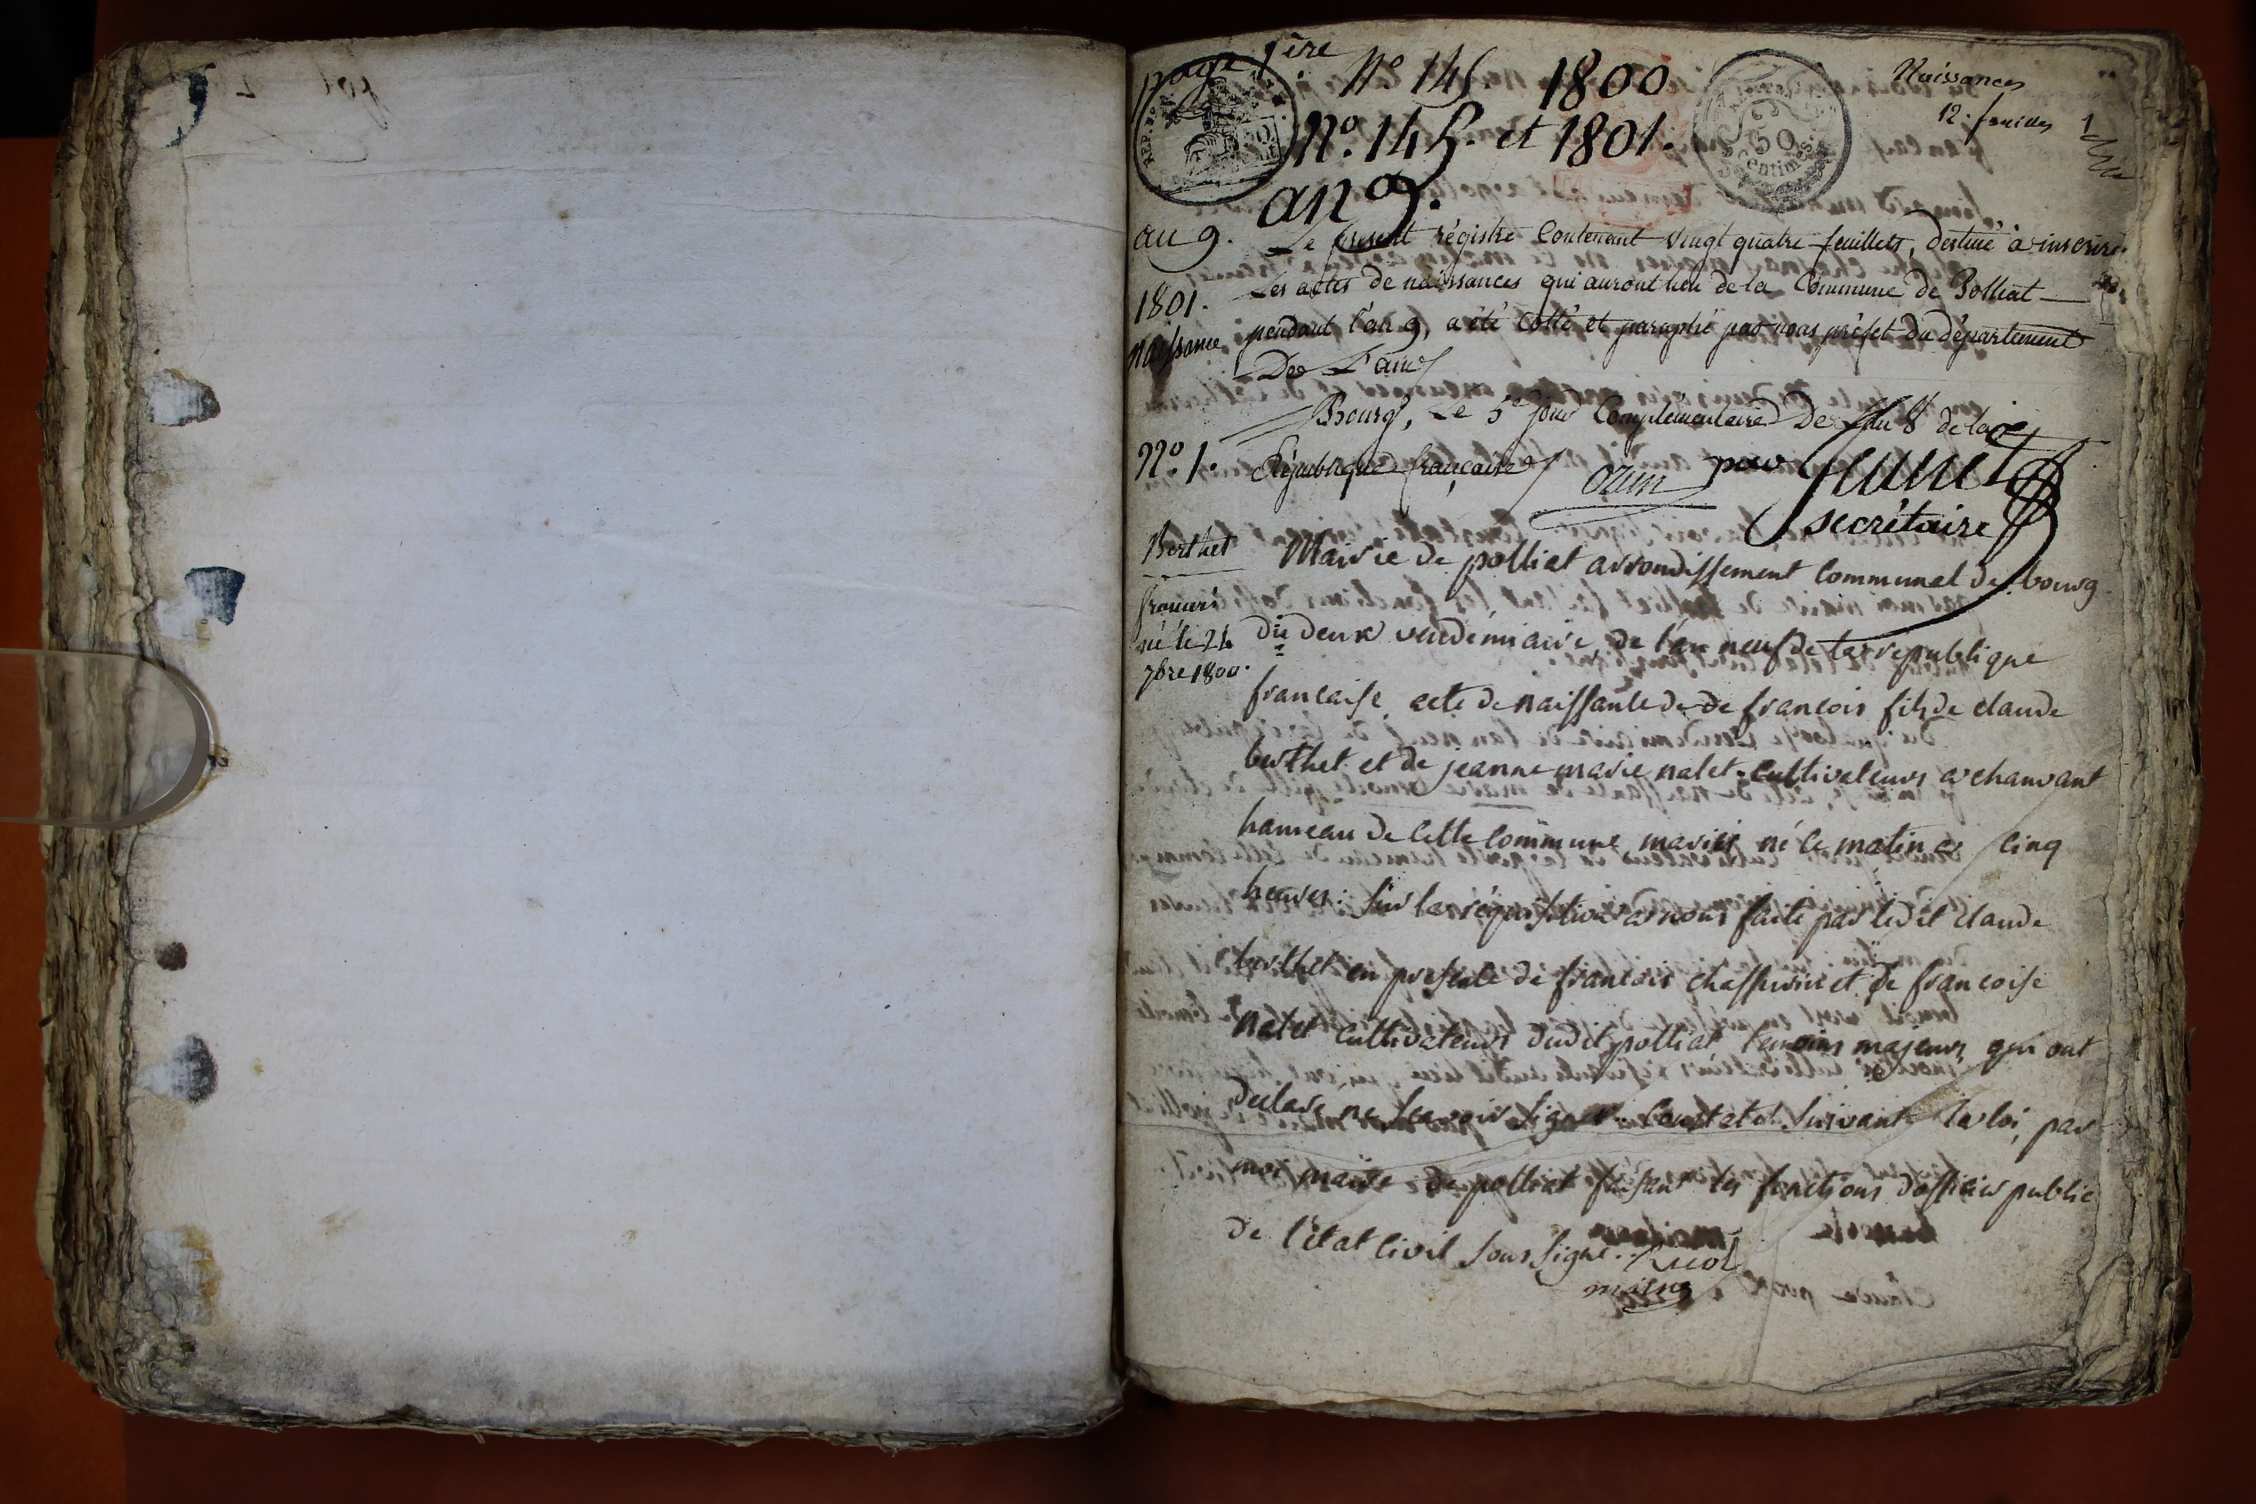 page 1ère
N° 145 1800
N°. 145. et 1801.
an 9.
Naissances
12. feuilles
1
50
Centimes
an 9.
1801.
Naissance
N°. 1.
Le present régistre Contenant vingt quatre feuillets, destiné à inscrire
Les actes de naissances qui auront lieu de la Commune de Polliat
pendant l'an 9, a été Cotté et paraphé par nous préfet du département
De L'ain
Bourg, Le 5e jour Complémentaire De L'an 8 de la
République française
ozun pour
secrétaire
Berthet
françois
né le 24
7bre 1800.
Mairie de polliat arrondissement Communal de bourg
du deux vendémiaire de l'an neuf de la republique
francaise acte de naissance de de francois fils de claude
berthet et de jeanne marie nalet cultivateurs a chanvant
hameau de cette commune mariés né le matin a cinq
heures. Sur la réquisition a nous faite par ledit claude
berthet en presence de francois et de francoise
nalet cultivateurs dudit polliat temoins majeurs qui ont
declaré ne scavoir signer. Constaté suivant la loi, par
moi maire de polliat faisant les fonctions d'officier public
de l'état civil soussigné.
maire